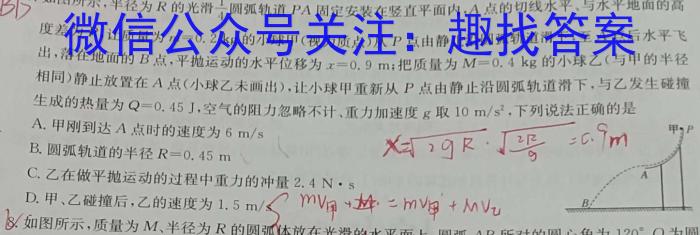 如图所示,半径为R的光滑1/4圆弧轨道PA固定安装在竖直平面内,A点的切线水平,与水平地面的高
度差为 质量为m=0.2kg的小球甲(视 质点)从P点由静止 后水平飞
微信公众号关注:趣找答案
出,落在地面的B点,平抛运动的水平位移为x=0.9m;把质量为M=0.4kg的小球乙(与甲的半径
相同)静止放置在A点(小球乙未画出),让小球甲重新从P点由静止沿圆弧轨道滑下,与乙发生碰撞
生成的热量为Q=0.45J,空气的阻力忽略不计、重力加速度g取10m/s²,下列说法正确的是
A.甲刚到达A点时的速度为6m/s
B.圆弧轨道的半径R=0.45m
C.乙在做平抛运动的过程中重力的冲量2.4N·s
D.甲、乙碰撞后,乙的速度为1.5m/s
x=√2gR·√(2R/g)=0.9m
甲 P
A
B
mv甲+ =mv甲+Mv乙
如图所示,质量为M、半径为R的圆弧体放在光滑的水平面上,圆弧AB所对的圆心角为120°,O为圆